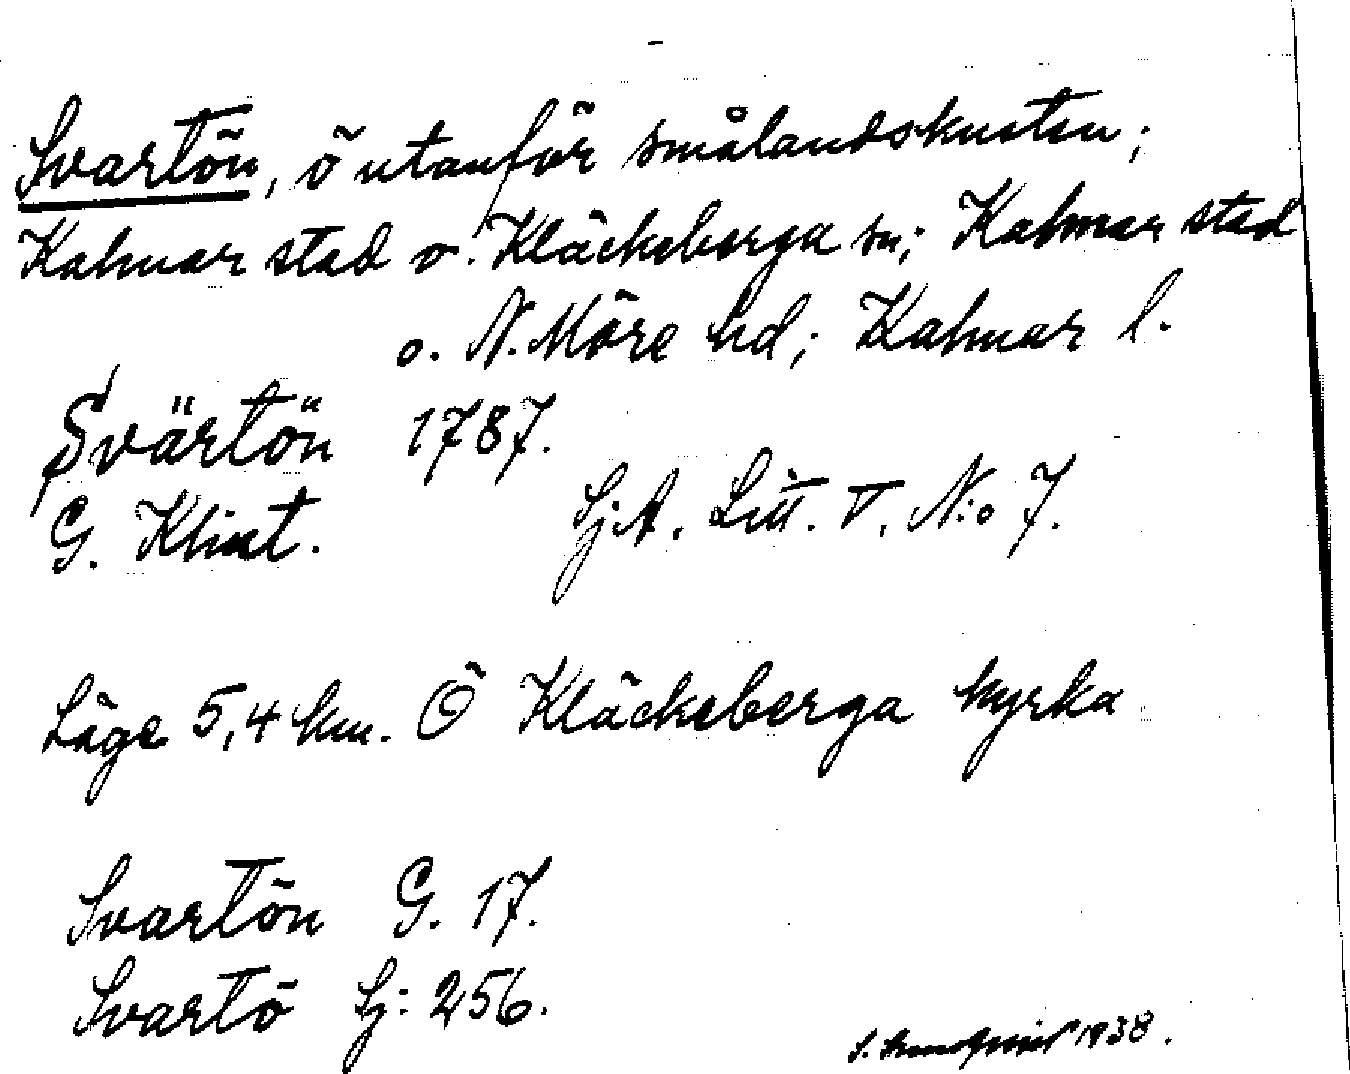 Svartön, ö utanför smålandskusten;
Kalmar stad o. Kläckeberga sn; Kalmar stad
o. N. Möre hd; Kalmar l.
Svärtön 1787.
G. Klint. Sj.A. Litt. V. N:o 7.
Läge 5,4 km. Ö Kläckeberga kyrka
Svartön G. 17.
Svartö Sj: 256.
1938.